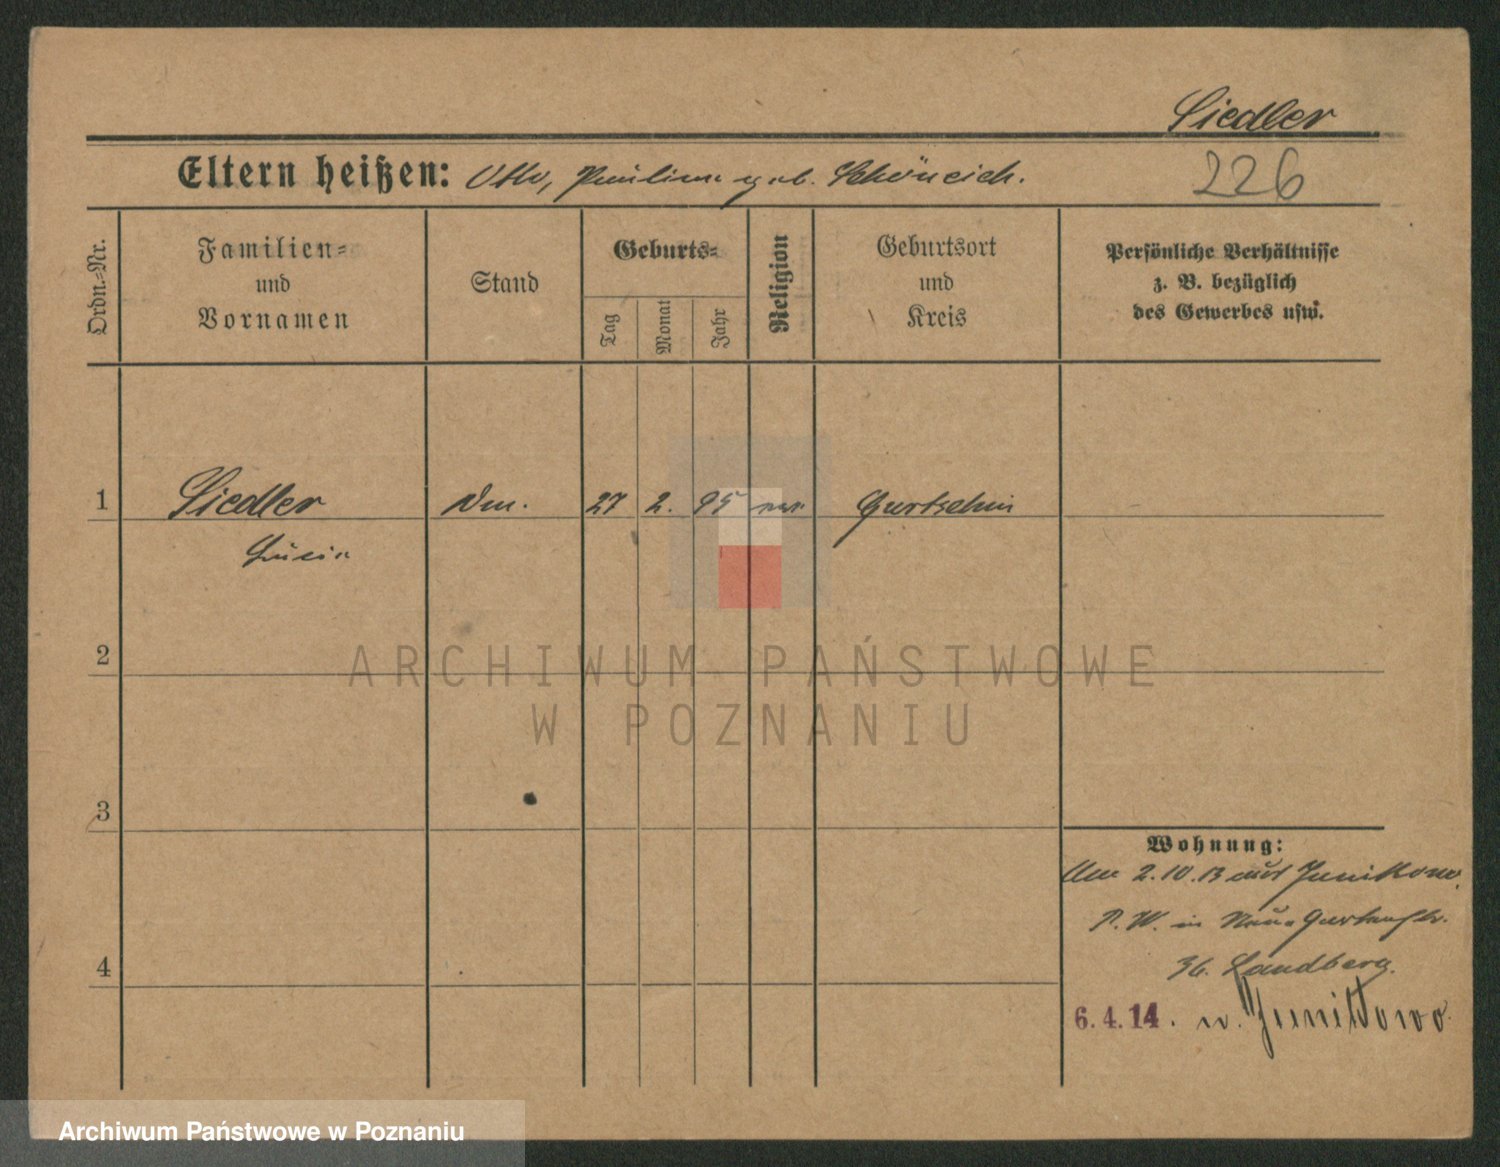 Siedler
Eltern heißen: Otto, Pauline geb. Schöneich.
226
Ordn.-Nr.
Familien-
und
Vornamen
Stand
Geburts-
Tag
Monat
Jahr
Religion
Geburtsort
und
Kreis
Persönliche Verhältnisse
z. B. bezüglich
des Gewerbes usw.
1 Siedler 27 2. 95 Gurtschin
2
3
4
ARCHIWUM PAŃSTWOWE
W POZNANIU
Wohnung:
Am 2.10.13 aus Junikowo.
P. W. in Neue Gartenstr.
36. Landberg.
6.4.14. n. Junikowo.
Archiwum Państwowe w Poznaniu